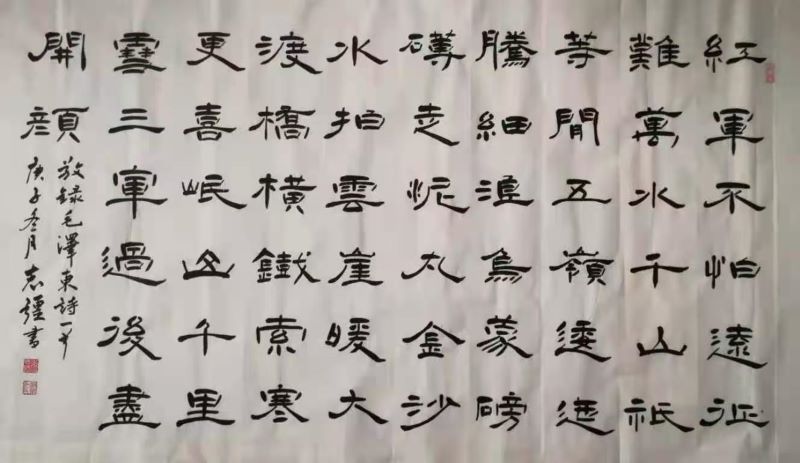 紅軍不怕遠征
難萬水千山祇
等閒五嶺逶迤
騰細浪烏蒙磅
礴走泥丸金沙
水拍雲崖暖大
渡橋橫鐵索寒
更喜岷山千里
雪三軍過後盡
開顏
敬錄毛澤東詩一首
庚子冬月志疆書